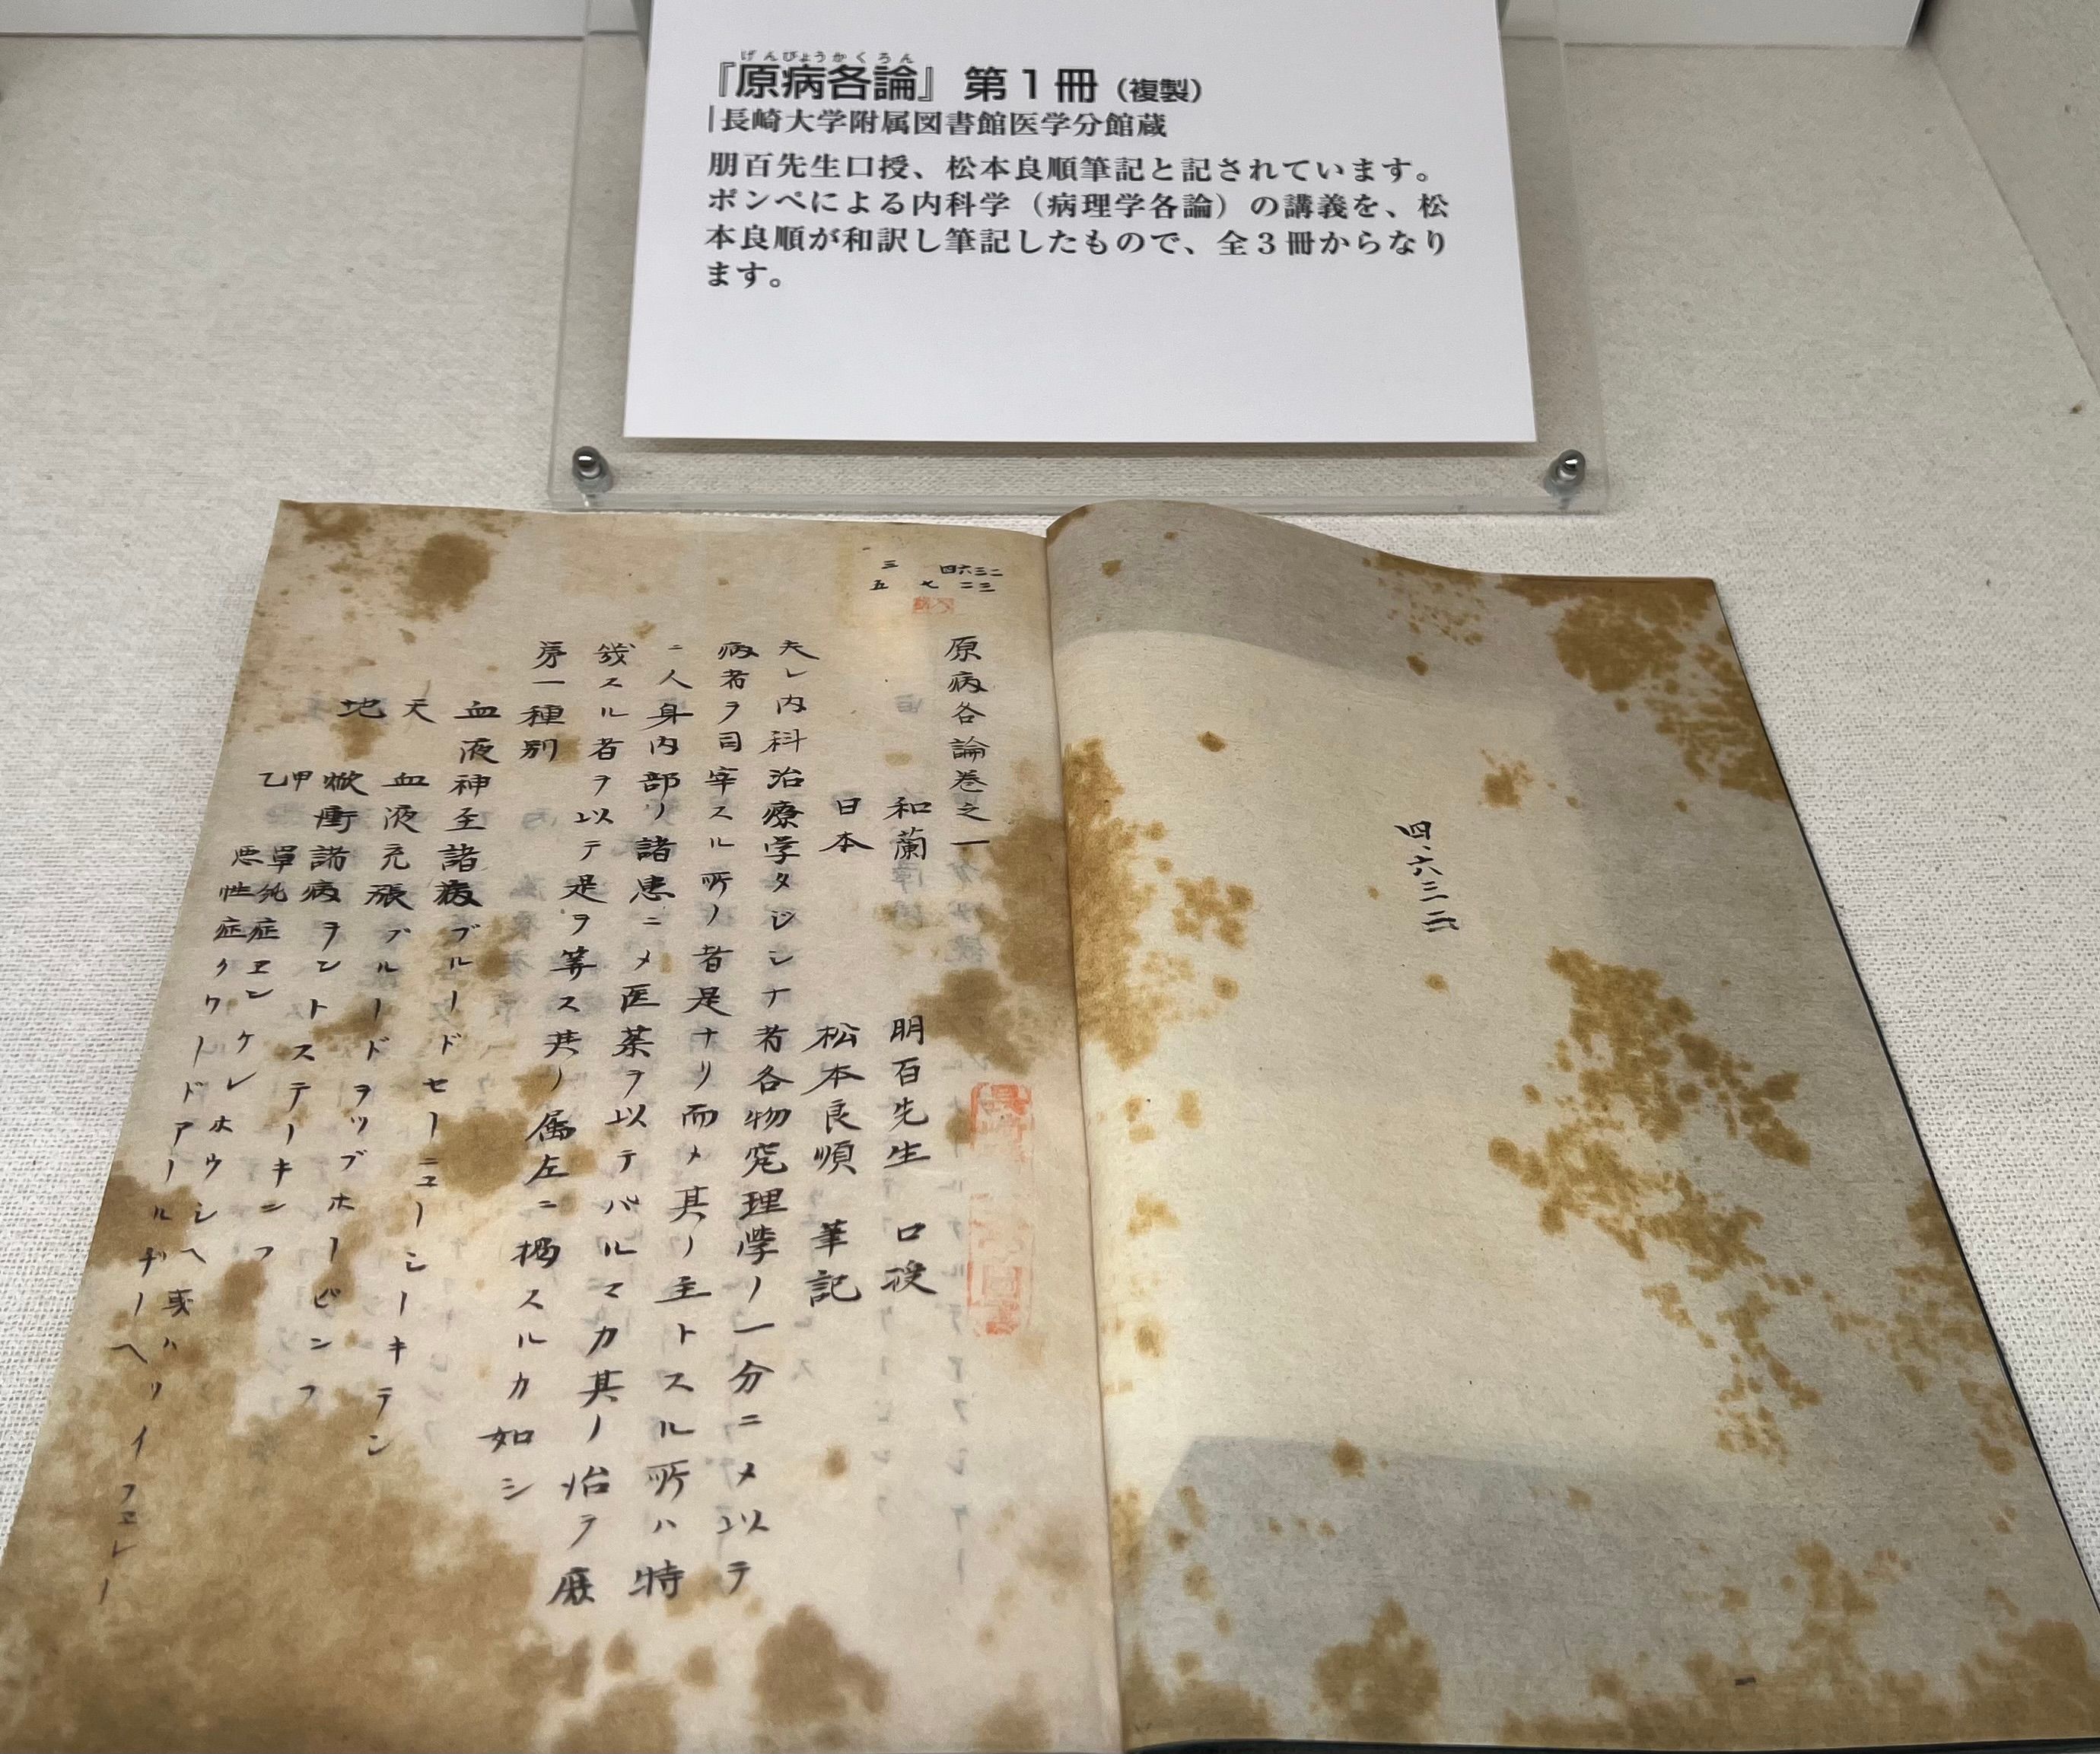 げんびょうかくろん
『原病各論』 第1冊（複製）
長崎大学附属図書館医学分館蔵
朋百先生口授、松本良順筆記と記されています。
ポンペによる内科学（病理学各論）の講義を、松
本良順が和訳し筆記したもので、全3冊からなり
ます。
四、六三二
原病各論巻之一
和蘭 朋百先生 口授
日本 松本良順 筆記
夫レ内科治療学タジンナ者各物究理学ノ一分ニメ以テ
病者ヲ司宰スル所ノ者是ナリ而メ其ノ主トスル所ハ特
ニ人身内部ノ諸患ニメ医薬ヲ以テバルマカ其ノ治ヲ展
スル者ヲ以テ是ヲ等ス其ノ属左ニ掲スルカ如シ
第一種別
血液神至諸病ブルードセーニューシーキテン
天 血液充脹ブルードヲップホーピンフ
地 焮衝諸病ヲントステーキンフ
甲 単純症ヱンケレホウシヘ或ハ
乙 悪性症クワードアールチーヘ